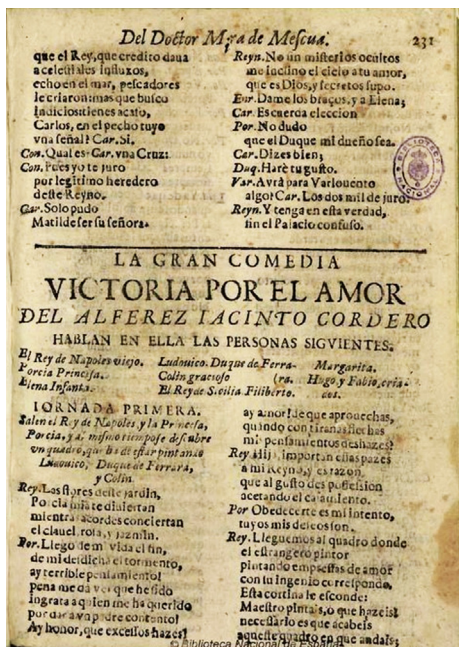 Del Doctor Mira de Mescua. 231
que el Rey, que credito daua
a celestiales influxos,
echo en el mar, pescadores
le criaron: mas que busco
indicios: tienes acaso,
Carlos, en el pecho tuyo
vna señal? Car. Si.
Con. Qual es? Car. vna Cruz:
Con. Pues yo te juro
por legitimo heredero
deste Reyno.
Car. Solo pudo
Matilde ser su señora.
Reyn. No sin misterios ocultos
me inclinò el cielo a tu amor,
que es Dios, y secretos supo.
Enr. Dame los braços, y a Elena;
Car. Es cuerda eleccion
Por. No dudo
que el Duque mi dueño sea.
Car. Dizes bien;
Duq. Harè tu gusto.
Var. Avrà para Varlouento
algo? Car. Los dos mil de juro.
Reyn. Y tenga en esta verdad,
fin el Palacio confuso.
LA GRAN COMEDIA
VICTORIA POR EL AMOR
DEL ALFEREZ IACINTO CORDERO
HABLAN EN ELLA LAS PERSONAS SIGVIENTES.
El Rey de Napoles viejo.
Porcia Princesa.
Elena Infanta.
Ludouico. Duque de Ferra-
Colin gracioso (ra.
El Rey de Sicilia Filiberto.
Margarita.
Hugo y Fabio, cria-
dos.
IORNADA PRIMERA.
Salen el Rey de Napoles, y la Princesa,
Porcia, y al mismo tiempo se descubre
vn quadro, que ha de estar pintando
Ludouico, Duque de Ferrara,
y Colin.
Rey. Las flores deste jardin,
Porcia mia te diuiertan
mientras acordes conciertan
el clauel, rosa, y jazmin.
Por. Llegò de mi vida el fin,
de mi desdicha el tormento,
ay terrible pensamiento!
pena me da ver que he sido
ingrata a quien me ha querido
por dar a vn padre contento!
Ay honor, que excessos hazes!
ay amor! de que aprouechas,
quando con tiranas flechas
mis pensamientos deshazes?
Rey. Hija, importan estas pazes
a mi Reyno, y es razon,
que al gusto des possession
acetando el casamiento.
Por. Obedecerte es mi intento,
tuyos mis deseos son.
Rey. Lleguemos al quadro donde
el estrangero pintor
pintando empressas de amor
con tu ingenio corresponde,
Esta cortina le esconde:
Maestro pintais, o que hazeis?
necessario es que acabeis
aqueste quadro en que andais;
BIBLIOTECA NACIONAL
© Biblioteca Nacional de España